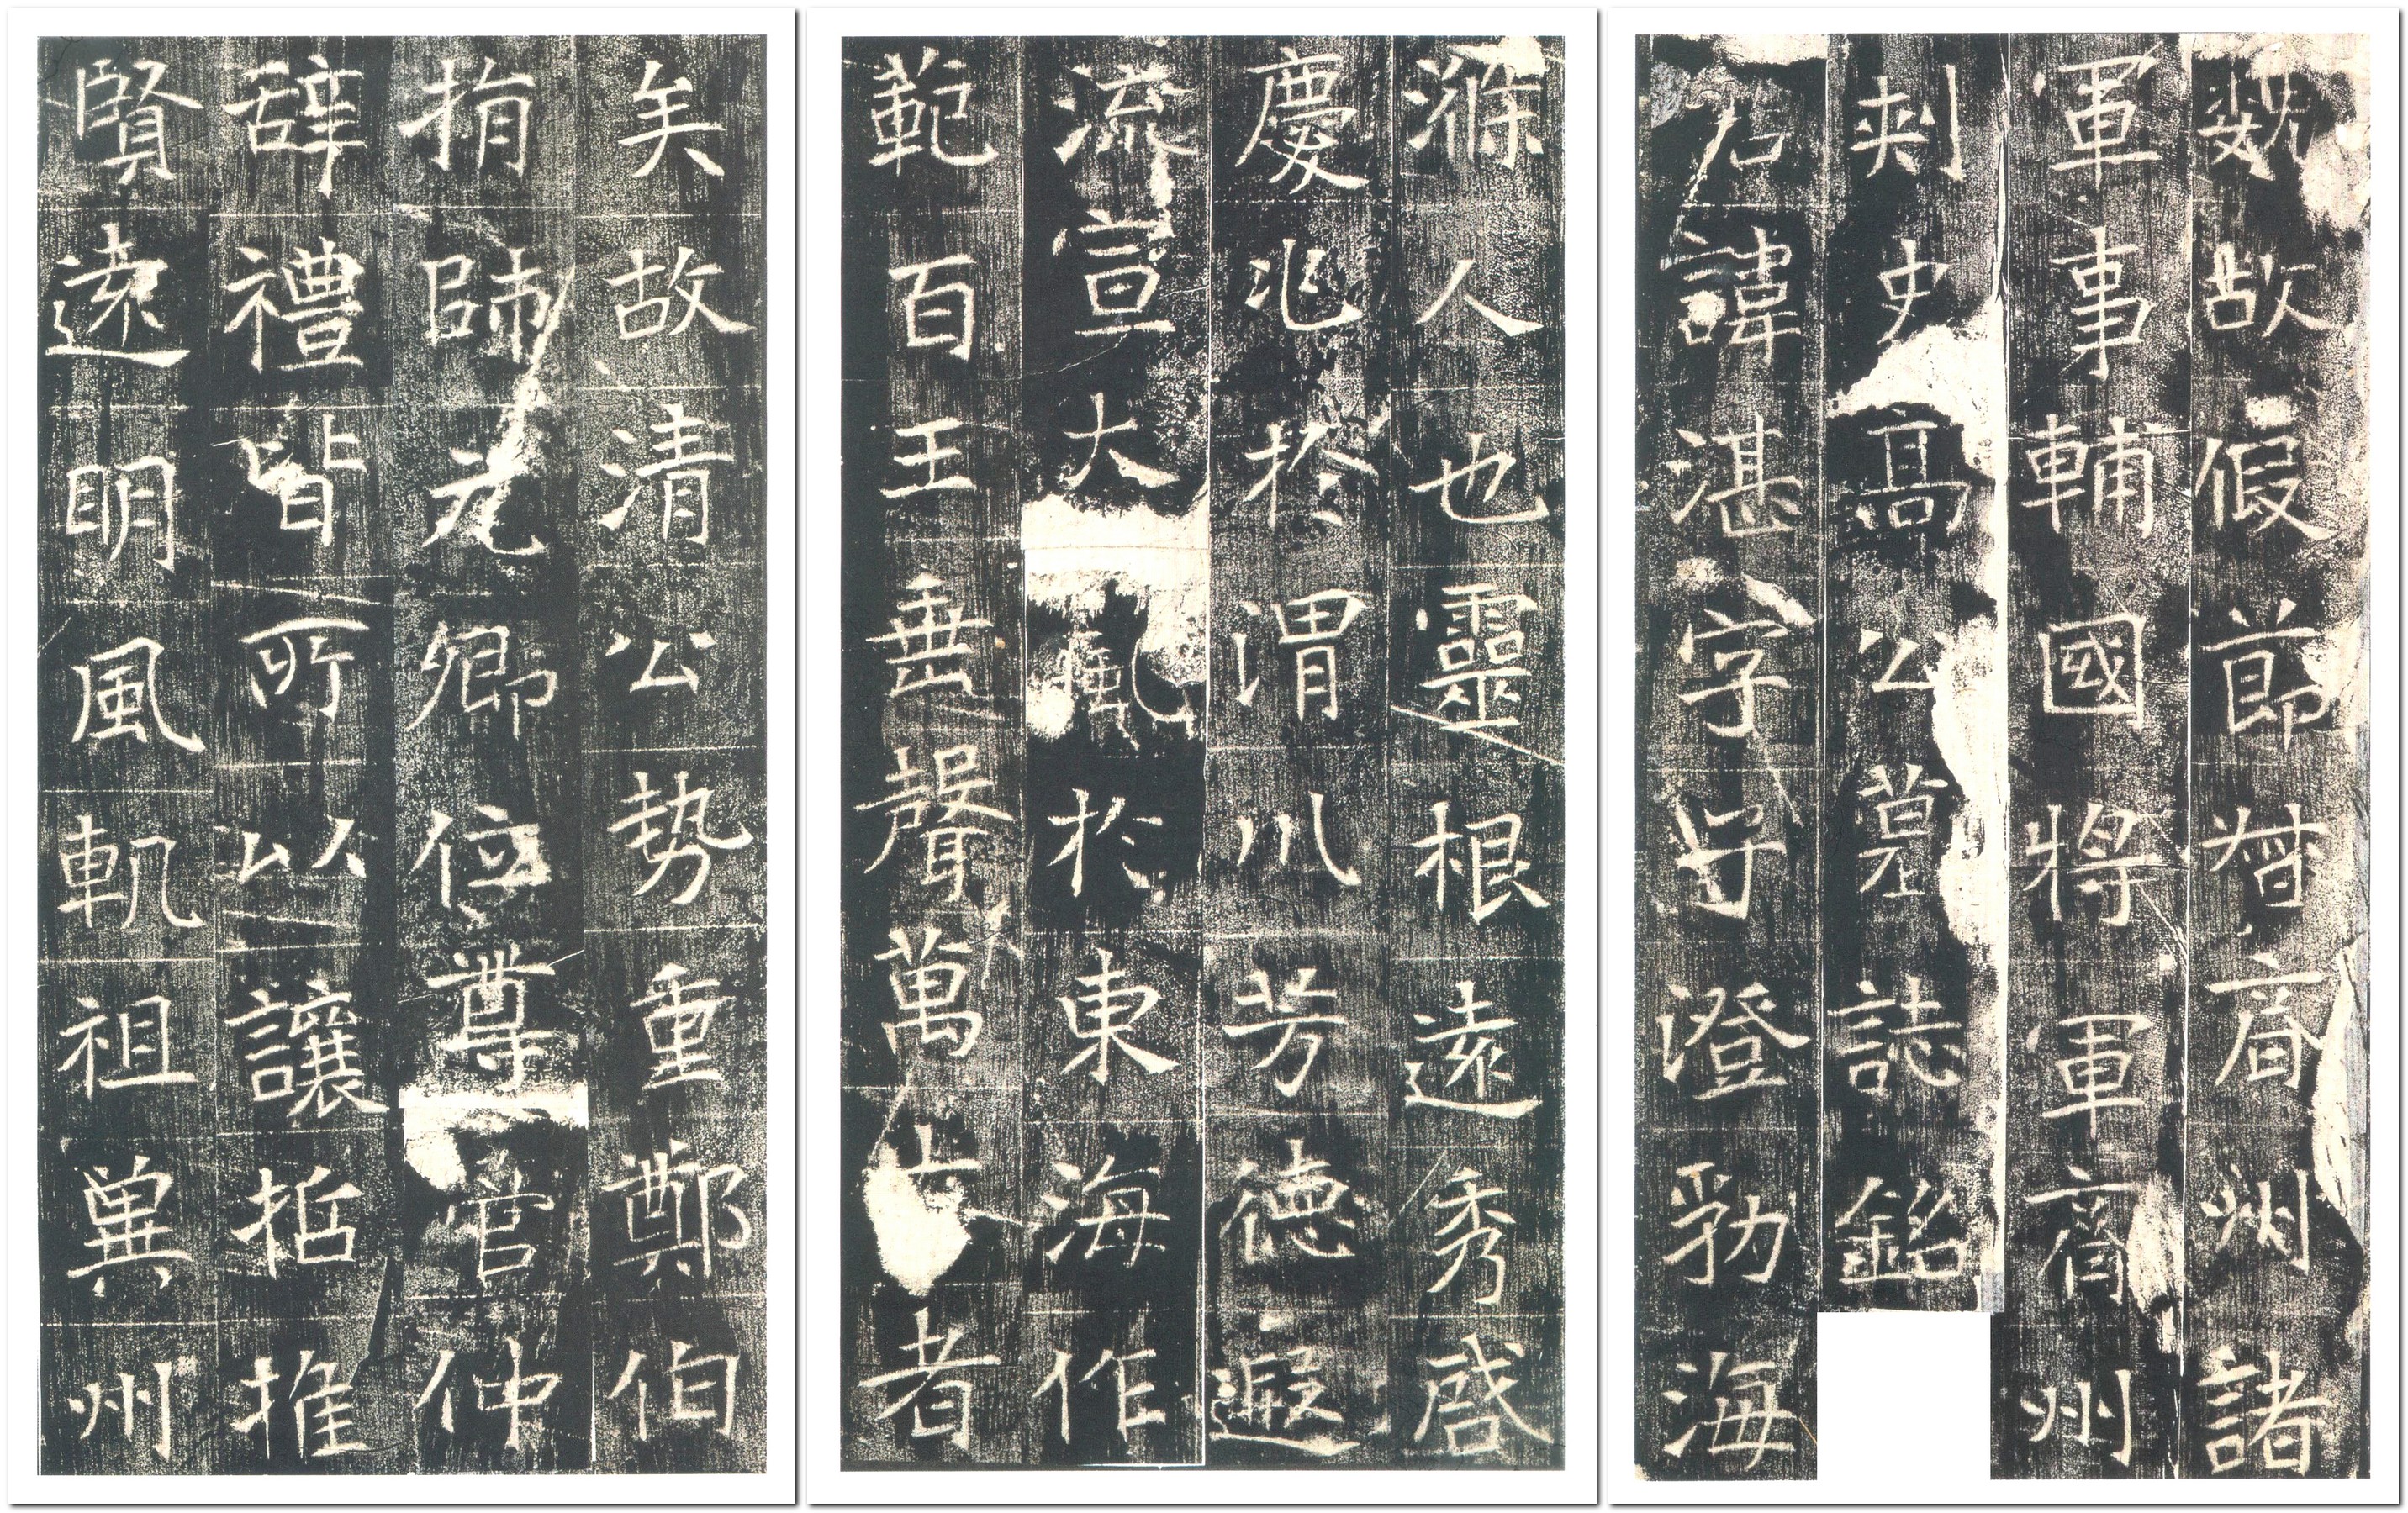 魏故假節督齊州諸
軍事輔國將軍齊州
刺史高公墓誌銘
君諱湛字子澄勃海
滌人也靈根遠秀啓
慶兆於渭川芳德遐
流宣大風於東海作
範百王垂聲萬古者
矣故清公勢重鄭伯
捐師元卿位尊管仲
辭禮皆所以讓括推
賢遠明風軌祖冀州